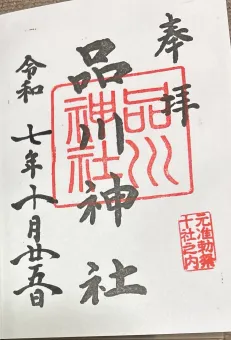 奉拝
品川神社
品川神社
元准勅祭
十社之内
令和七年十月廿五日